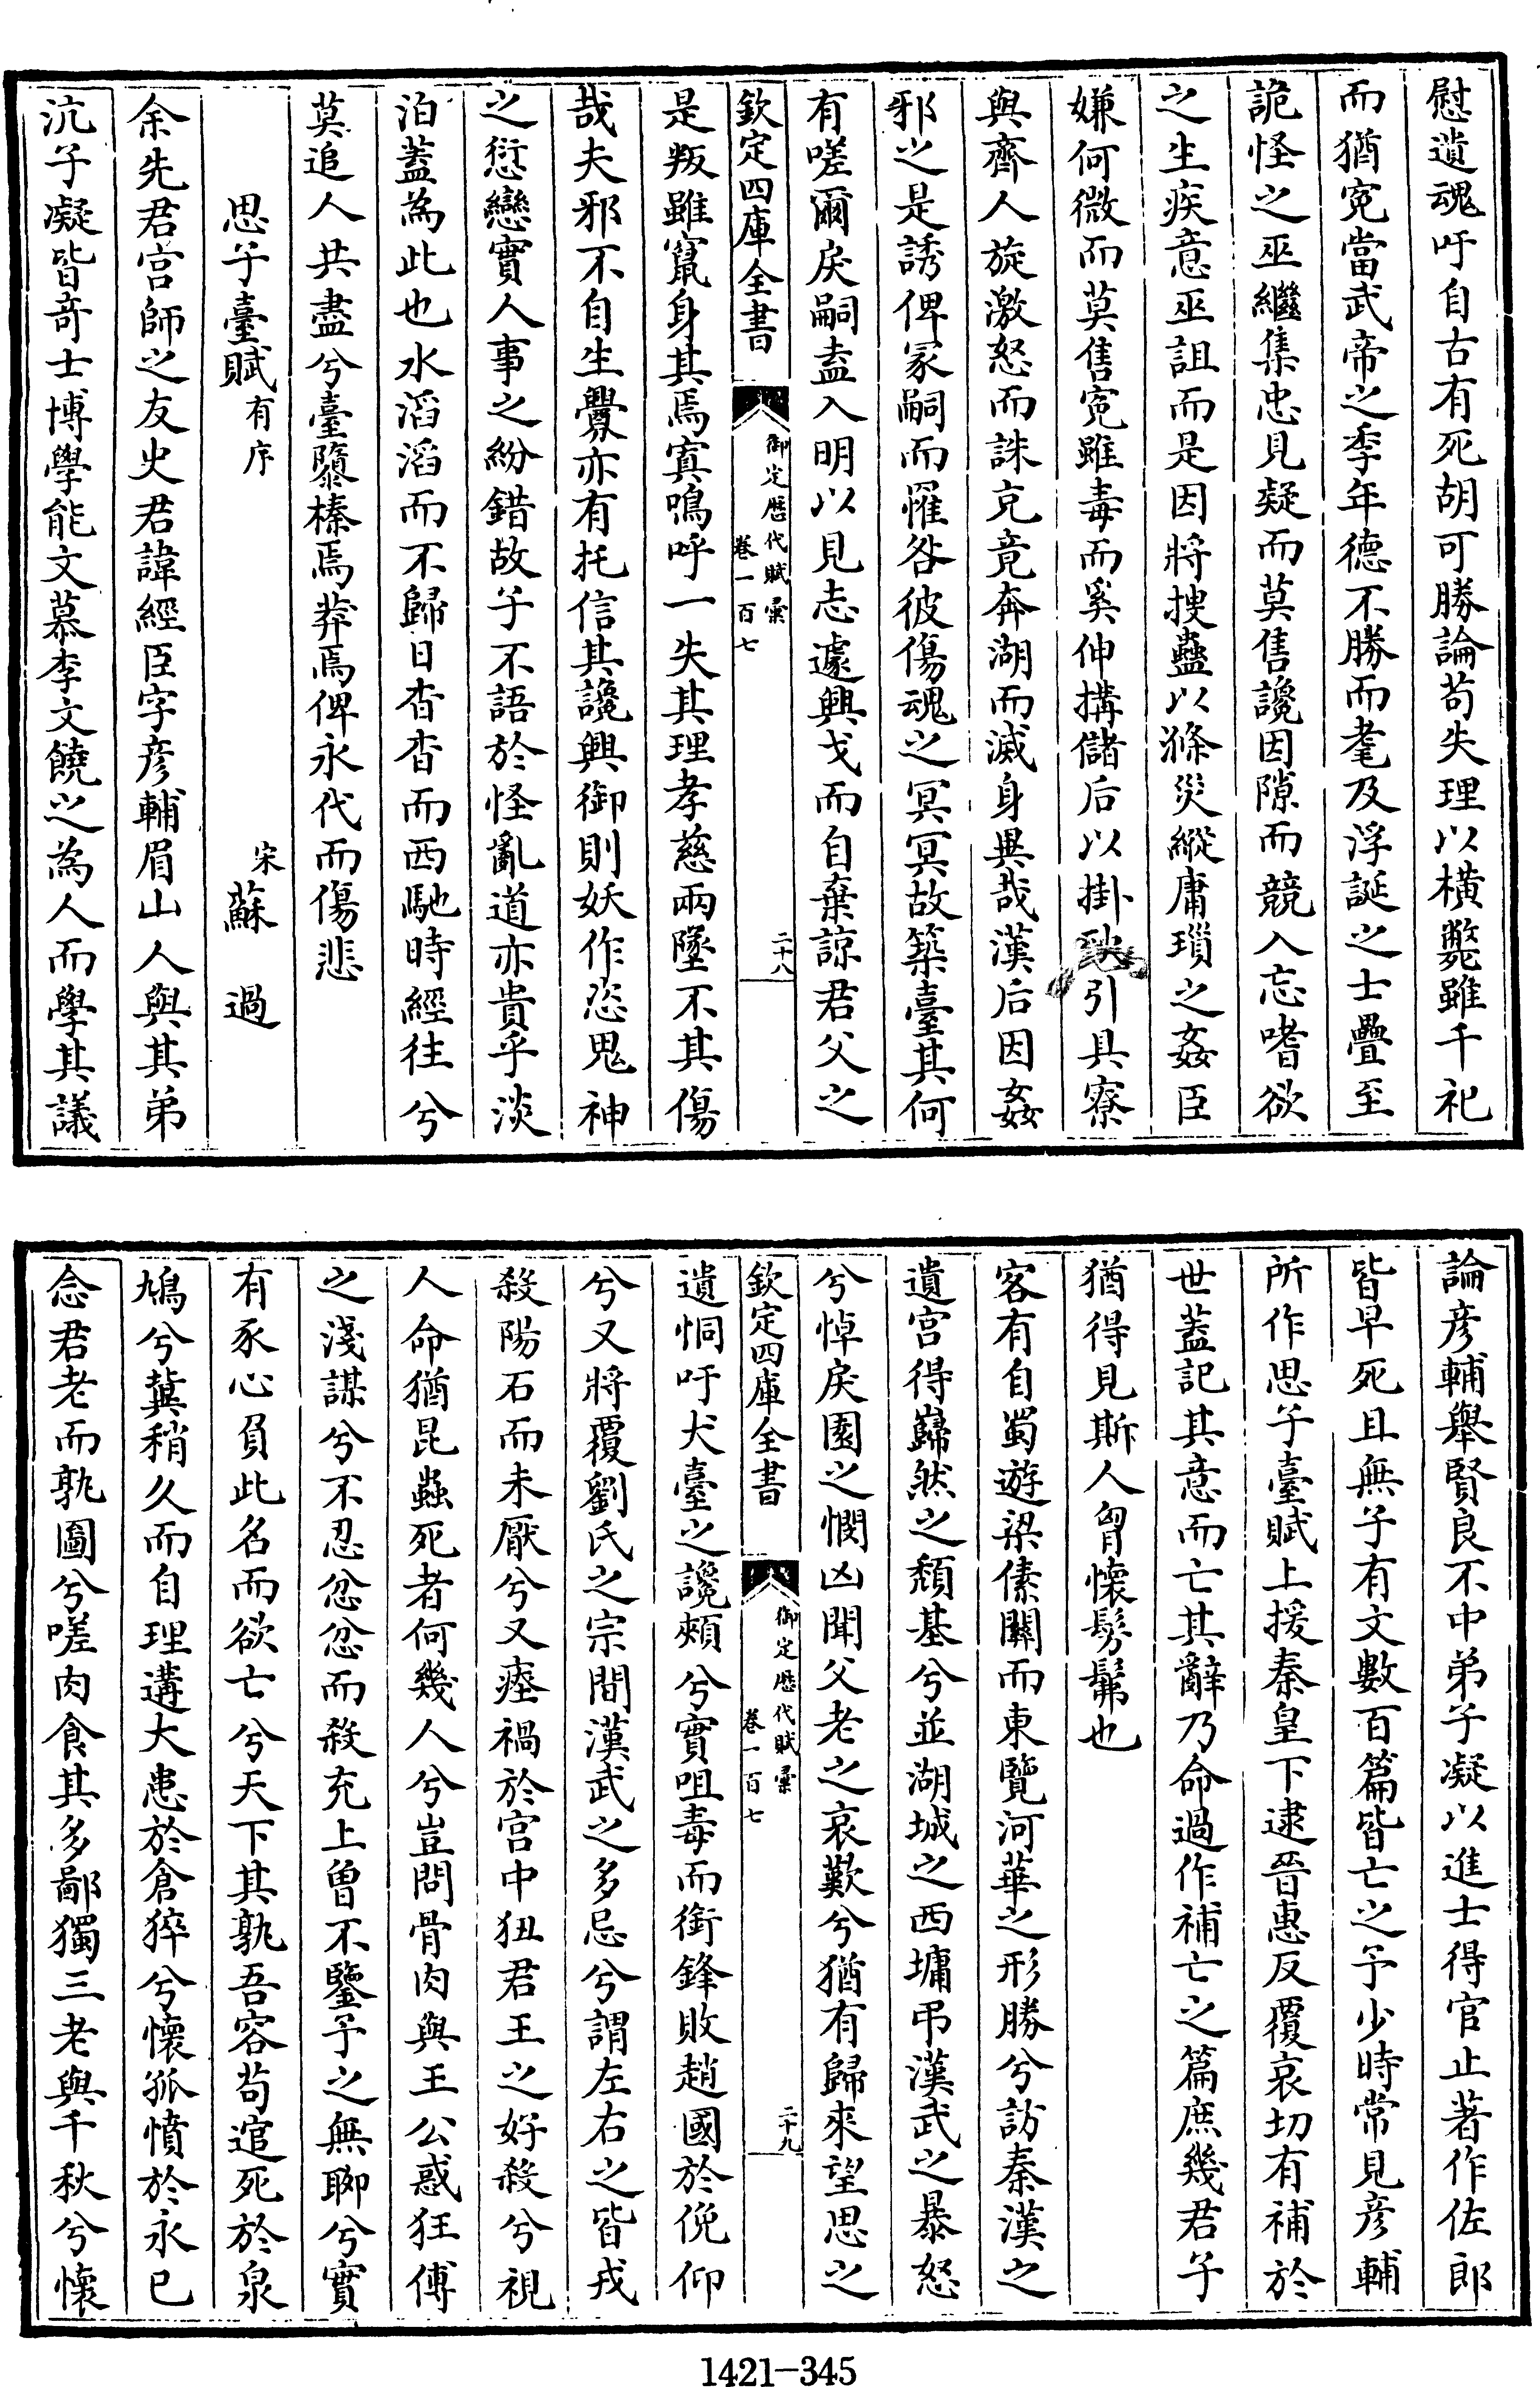 慰遺魂吁自古有死胡可勝論苟失理以橫斃雖千祀
而猶寃當武帝之季年德不勝而耄及浮誕之士疊至
詭怪之巫繼集忠見疑而莫售讒因隙而競入忘嗜欲
之生疾意巫詛而是因將搜蠱以滌災縱庸瑣之姦臣
嫌何微而莫售寃雖毒而奚伸搆儲后以掛 引具寮
與齊人旋激怒而誅充竟奔湖而滅身異哉漢后因姦
邪之是誘俾冢嗣而罹咎彼傷魂之冥冥故築臺其何
有嗟爾戾嗣盍入明以見志遽興戈而自棄諒君父之
欽定四庫全書
御定歴代賦彙
卷一百七
二十八
是叛雖竄身其焉寘鳴呼一失其理孝慈兩墜不其傷
哉夫邪不自生釁亦有托信其讒興御則妖作恣鬼神
之愆戀實人事之紛錯故子不語於怪亂道亦貴乎淡
泊蓋為此也水滔滔而不歸日杳杳而西馳時經往兮
莫追人共盡兮臺隳榛焉莽焉俾永代而傷悲
思子臺賦有序
宋蘇過
余先君宫師之友史君諱經臣字彦輔眉山人與其弟
沆子凝皆奇士博學能文慕李文饒之為人而學其議
論彦輔舉賢良不中弟子凝以進士得官止著作佐郎
皆早死且無子有文數百篇皆亡之予少時常見彦輔
所作思子臺賦上援秦皇下逮晉惠反覆哀切有補於
世蓋記其意而亡其辭乃命過作補亡之篇庶幾君子
猶得見斯人胷懷髣髴也
客有自蜀遊梁傃關而東覽河華之形勝兮訪秦漢之
遺宫得巋然之頹基兮並湖城之西墉弔漢武之暴怒
兮悼戾園之憫凶聞父老之哀歎兮猶有歸來望思之
欽定四庫全書
御定歴代賦彙
卷一百七
二十九
遺恫吁犬臺之讒頰兮實咀毒而銜鋒敗趙國於俛仰
兮又將覆劉氏之宗間漢武之多忌兮謂左右之皆戎
殺陽石而未厭兮又瘞禍於宫中狃君王之好殺兮視
人命猶昆蟲死者何幾人兮豈問骨肉與王公惑狂傅
之淺謀兮不忍忿忿而殺充上曾不鑒予之無聊兮實
有豕心負此名而欲亡兮天下其孰吾容苟逭死於泉
鳩兮冀稍久而自理遘大患於倉猝兮懷孤憤於永已
念君老而孰圖兮嗟肉食其多鄙獨三老與千秋兮懷
1421-345